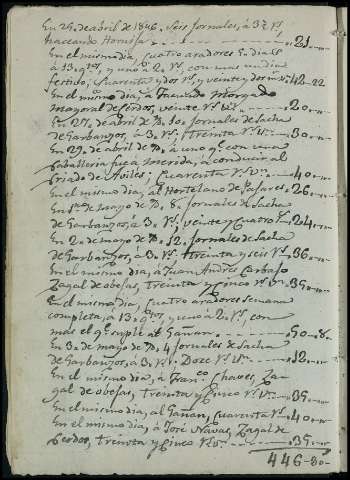 En 25, de abril de 1846, Seis Jornales, à 3 r.s
haciendo Hornija . . . 21 . . .
En el mismo dia, cuatro aradores
à 13. q.tos, y uno à 2. r.s con mas medio
festivo, Cuarenta y dos r.s, y veinte y dos m.s 42-22
En el mismo dia, à Facundo Morgado
mayoral de Cerdos, veinte r.s v.n . . . 20 . . .
En 27. de abril de Yd. 10. Jornales de Sacha
de Garbanzos, à 3. r.s, Treinta r.s v.n . . . 30 . . .
En 29. de abril de Yd. à uno q.e con una
Caballeria fué à Merida, à conducir al
Criado de Aviles; Cuarenta r.s v.n . . . 40 . . .
En el mismo dia, al Hortelano de Pajares . 26 . . .
En 1.º de Mayo de Yd. 8. Jornales de Sacha
de Garbanzos, à 3. r.s, veinte y Cuatro r.s 24 . . .
En 2. de mayo de Yd. 12. Jornales de Sacha
de Garbanzos, à 3. r.s, Treinta y seis r.s . 36 . . .
En el mismo dia, à Juan Andres Carbajo
Zagal de obejas, Treinta y Cinco r.s v.n . 35 . . .
En el mismo dia, Cuatro aradores semana
completa, à 13. q.tos, y uno à 2. r.s, con
mas el q.e suplió al Gañan . . . 50-8.
En 3. de mayo de Yd. 4 Jornales de Sacha
de Garbanzos, à 3. r.s, Doze r.s v.n . . . 12 . . .
En el mismo dia, à Fran.co Chaves, Za-
gal de obejas, Treinta y Cinco r.s v.n . . 35 . . .
En el mismo dia, al Gañan, Cuarenta r.s . 40 . . .
En el mismo dia, à José Navas, Zagal de
Cerdos, Treinta y Cinco r.s v.n . . . 35 . . .
446-30-